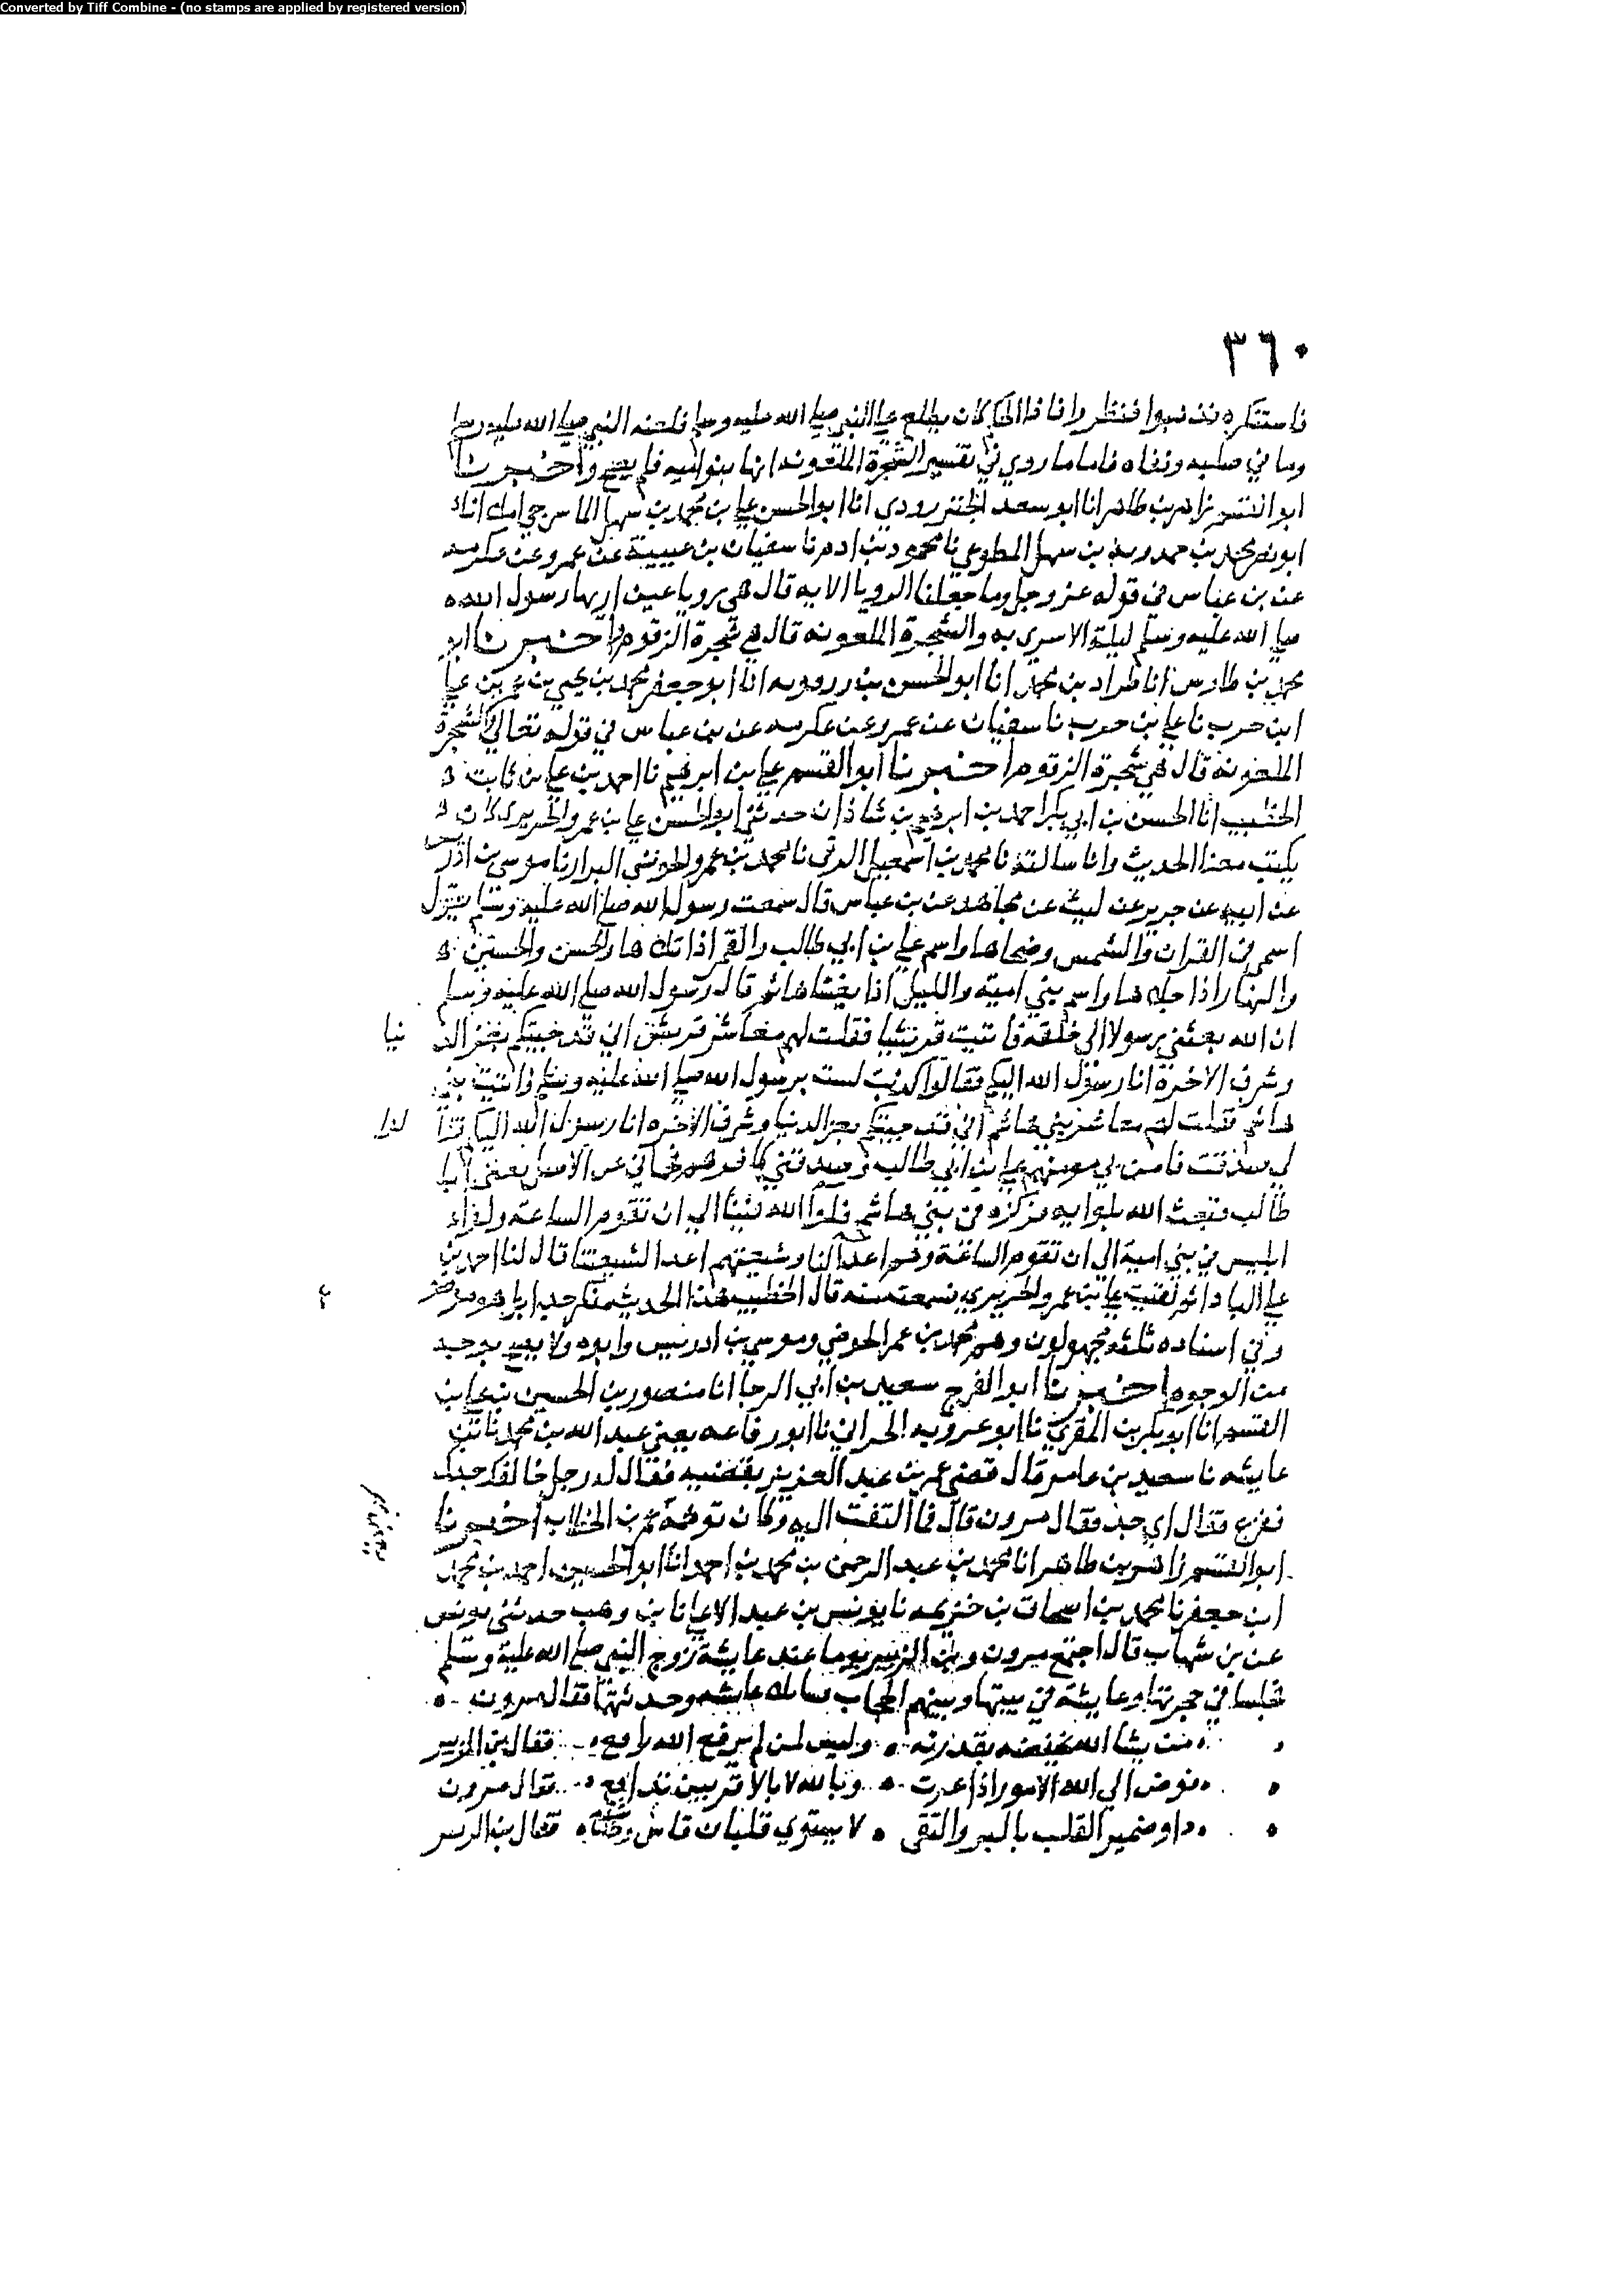 Converted by Tiff Combine - (no stamps are applied by registered version)
٣٦٠
فاستنكره فذهبوا فنظروا فاذا الحكم كان يطلع علي النبي صلي الله عليه وسلم فلعنه النبي صلي الله عليه وسلم
وما في صلبه ونفاه فاما ما روي في تفسير الشجرة الملعونه انها بنوا اميه فلم يصح واخبرنا
ابو القسم زاهر بن طاهر انا ابو سعد الجنزرودي انا ابو الحسن علي بن محمد بن سهل الماسرجي املا انا
ابو نصر محمد بن حمدويه بن سهل المطوعي نا محمود بن ادم نا سفيان بن عيينة عن عمرو عن عكرمه
عن بن عباس في قوله عز وجل وما جعلنا الرويا الايه قال هي رويا عين اريها رسول الله
صلي الله عليه وسلم ليلة الاسري به والشجرة الملعونه قال هي شجرة الزقوم اخبرنا ابو
محمد بن طاوس انا طراد بن محمد انا ابو الحسن بن انا ابو جعفر محمد بن يحيي بن عمر بن علي
ابن حرب نا علي بن حرب نا سفيان عن عمرو عن عكرمه عن بن عباس في قوله تعالي والشجرة
الملعونه قال هي شجرة الزقوم اخبرنا ابو القسم علي بن ابرهيم نا احمد بن علي بن ثابت
الخطيب انا الحسن بن ابي بكر احمد بن ابرهيم بن شاذان حدثني ابو الحسن علي بن عمرو الحريري كان
يكتب معنا الحديث وانا سالته نا محمد بن اسمعيل الرقي نا محمد بن عمرو الحوضي البزار نا موسي بن ادريس
عن ابيه عن جرير عن ليث عن مجاهد عن بن عباس قال سمعت رسول الله صلي الله عليه وسلم يقول
اسمي في القران والشمس وضحاها واسم علي بن ابي طالب والقمر اذا تلاها والحسن والحسين
والنهار اذا جلاها واسم بني امية والليل اذا يغشاها ثم قال رسول الله صلي الله عليه وسلم
ان الله بعثني رسولا الي خلقه فاتيت قريشا فقلت لهم معاشر قريش اني قد جيتكم بعز الدنيا
وشرف الاخرة انا رسول الله اليكم فقالوا كذبت لست برسول الله صلي الله عليه وسلم فاتيت بني
هاشم فقلت لهم معاشر بني هاشم اني قد جيتكم بعز الدنيا وشرف الاخره انا رسول الله اليكم فقالوا
لي صدقت فامن بي مومنهم علي بن ابي طالب وصدقني كافرهم فحماني عن الاصل يعني ابا
طالب فبعث الله بلوايه فركزه في بني هاشم فلوا الله فينا الي ان تقوم الساعه ولواء
ابليس في بني امية الي ان تقوم الساعة وهم اعدا لنا وشيعتهم اعدا لشيعتنا قال لنا احمد بن
علي البادا ثم لقيت علي بن عمرو الحريري فسمعته منه قال الخطيب هذا الحديث منكر جدا بل هو موضوع
وفي اسناده ثلثه مجهولون وهم محمد بن عمر الحوضي وموسي بن ادريس وابوه ولا يصح بوجه
من الوجوه اخبرنا ابو الفرج سعيد بن ابي الرجا انا منصور بن الحسين بن علي بن
القسم انا ابو بكر بن المقري نا ابو عروبه الحراني نا ابو رفاعه يعني عبد الله بن محمد نا بن
عايشه نا سعيد بن عامر قال قضي عمر بن عبد العزيز بقضيه فقال له رجل خالفك جدك
ففزع فقال اي جد فقال مروان قال فما التفت اليه وكان توهمه عمر بن الخطاب اخبرنا
ابو القسم زاهر بن طاهر انا محمد بن عبد الرحمن بن محمد بن احمد انا ابو الحسين احمد بن محمد
ابن جعفر نا محمد بن اسحاق بن خزيمه نا يونس بن عبد الاعلي انا بن وهب حدثني يونس
عن بن شهاب قال اجتمع مروان وبن الزبير يوما عند عايشة زوج النبي صلي الله عليه وسلم
فجلسا في حجرتها وعايشة في بيتها وبينهم الحجاب فسالا عايشه وحدثتهما فقال مروان
من يشا الله يخفضه بقدرته وليس لمن لم يرفع الله رافع فقال بن الزبير
فوض الي الله الامور اذا اعترت وبالله لا بالاقربين تدافع فقال مروان
داو ضمير القلب بالبر والتقي لا يستوي قلبان قاس وخاشع فقال بن الزبير